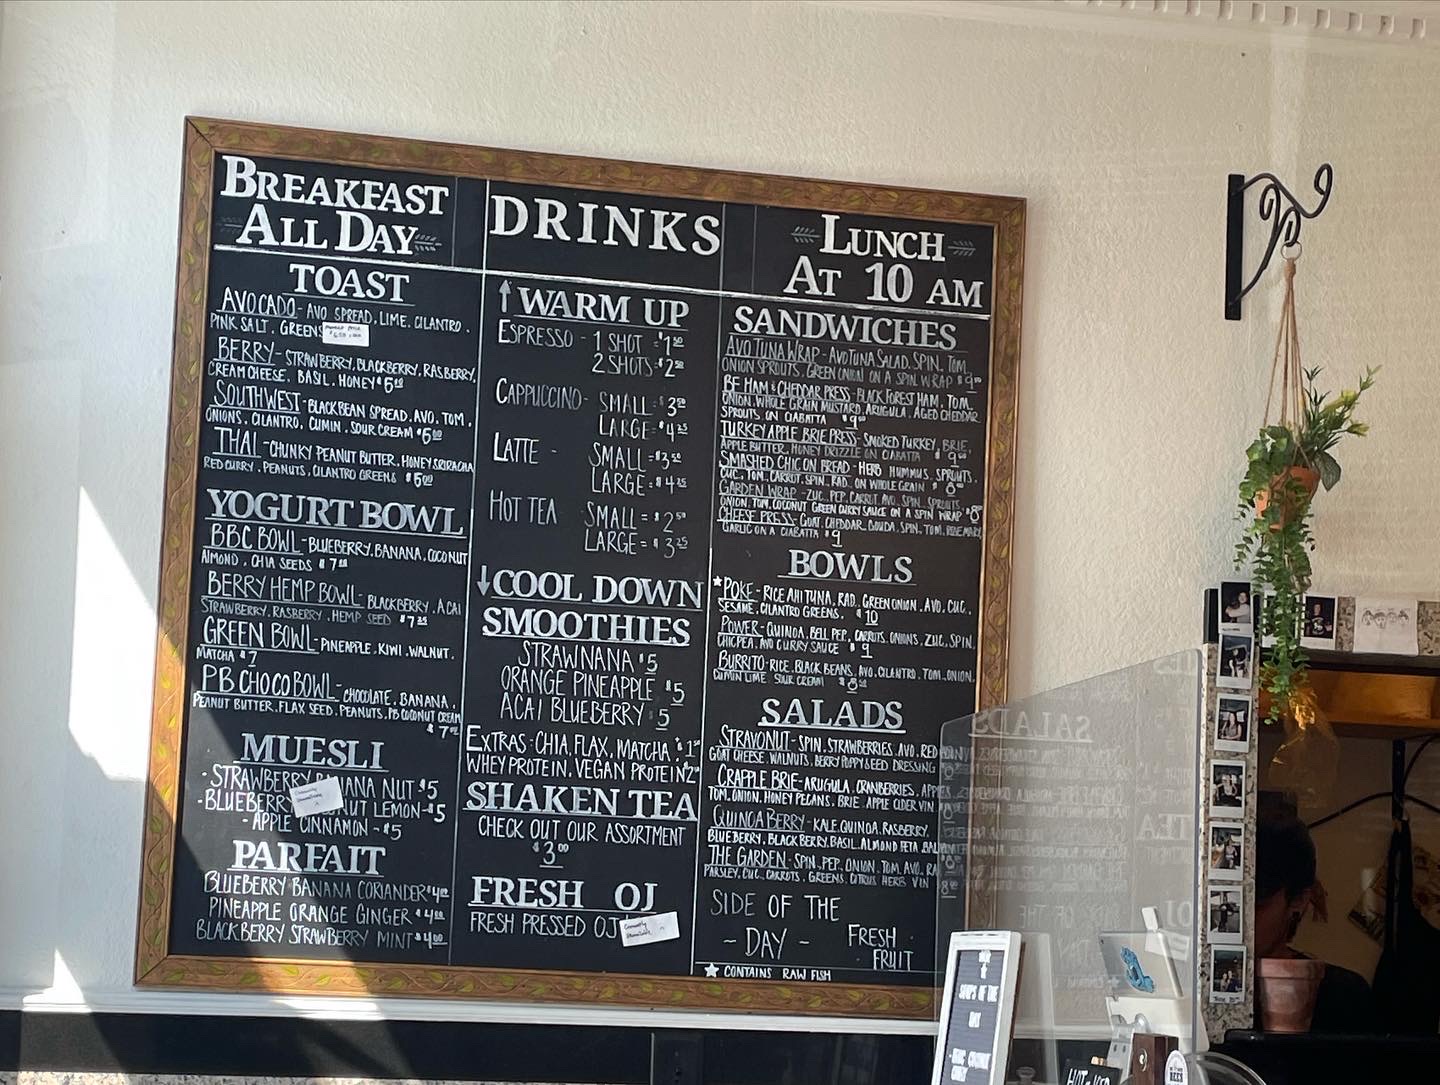 BREAKFAST
ALL DAY
TOAST
AVOCADO - AVO SPREAD, LIME, CILANTRO,
PINK SALT, GREENS
BERRY - STRAWBERRY, BLACKBERRY, RASBERRY,
CREAM CHEESE, BASIL, HONEY $5.00
SOUTHWEST - BLACK BEAN SPREAD, AVO, TOM,
ONIONS, CILANTRO, CUMIN, SOUR CREAM $6.00
THAI - CHUNKY PEANUT BUTTER, HONEY SRIRACHA
RED CURRY, PEANUTS, CILANTRO GREENS $5.00
YOGURT BOWL
BBC BOWL - BLUEBERRY, BANANA, COCONUT
ALMOND, CHIA SEEDS $7.00
BERRY HEMP BOWL - BLACKBERRY, ACAI
STRAWBERRY, RASBERRY, HEMP SEED $7.25
GREEN BOWL - PINEAPPLE, KIWI, WALNUT,
MATCHA $7
PB CHOCO BOWL - CHOCOLATE, BANANA,
PEANUT BUTTER, FLAX SEED, PEANUTS, PB COCONUT CREAM
$7.00
MUESLI
- STRAWBERRY BANANA NUT $5
- BLUEBERRY NUT LEMON - $5
- APPLE CINNAMON - $5
PARFAIT
BLUEBERRY BANANA CORIANDER $4.00
PINEAPPLE ORANGE GINGER $4.00
BLACKBERRY STRAWBERRY MINT $4.00
DRINKS
↑ WARM UP
ESPRESSO - 1 SHOT = $1.50
2 SHOTS = $2.50
CAPPUCCINO - SMALL = $3.50
LARGE = $4.25
LATTE - SMALL = $3.50
LARGE = $4.25
HOT TEA SMALL = $2.50
LARGE = $3.25
↓ COOL DOWN
SMOOTHIES
STRAWNANA $5
ORANGE PINEAPPLE $5
ACAI BLUEBERRY $5
EXTRAS - CHIA, FLAX, MATCHA $1
WHEY PROTEIN, VEGAN PROTEIN 2
SHAKEN TEA
CHECK OUT OUR ASSORTMENT
$3.00
FRESH OJ
FRESH PRESSED OJ
LUNCH
AT 10 AM
SANDWICHES
AVO TUNA WRAP - AVO TUNA SALAD, SPIN, TOM,
ONION SPROUTS, GREEN ONION ON A SPIN WRAP $9.00
BF HAM & CHEDDAR PRESS - BLACK FOREST HAM, TOM,
ONION, WHOLE GRAIN MUSTARD, ARUGULA, AGED CHEDDAR
SPROUTS, ON CIABATTA $9.00
TURKEY APPLE BRIE PRESS - SMOKED TURKEY, BRIE,
APPLE BUTTER, HONEY DRIZZLE ON CIABATTA $9.00
SMASHED CHIC ON BREAD - HERB HUMMUS, SPROUTS,
CUC, TOM, CARROT, SPIN, RAD, ON WHOLE GRAIN $8.00
GARDEN WRAP - ZUC, PEP, CARROT, AVO, SPIN, SPROUTS
ONION, TOM, COCONUT GREEN CURRY SAUCE ON A SPIN WRAP $8.00
CHEESE PRESS - GOAT, CHEDDAR, GOUDA, SPIN, TOM, ROSEMARY,
GARLIC ON A CIABATTA $9
BOWLS
★POKE - RICE AHI TUNA, RAD, GREEN ONION, AVO, CUC,
SESAME, CILANTRO GREENS, $10
POWER - QUINOA, BELL PEP, CARROTS, ONIONS, ZUC, SPIN,
CHICPEA, AVO CURRY SAUCE $9
BURRITO - RICE, BLACK BEANS, AVO, CILANTRO, TOM, ONION,
CUMIN LIME SOUR CREAM $8.50
SALADS
STRAVONUT - SPIN, STRAWBERRIES, AVO, RED
GOAT CHEESE, WALNUTS, BERRY POPPYSEED DRESSING
CRAPPLE BRIE - ARUGULA, CRANBERRIES, APPLE
TOM, ONION, HONEY PECANS, BRIE, APPLE CIDER VIN
QUINOA BERRY - KALE, QUINOA, RASBERRY,
BLUEBERRY, BLACKBERRY, BASIL, ALMOND FETA
THE GARDEN - SPIN, PEP, ONION, TOM, AVO,
PARSLEY, CUC, CARROTS, GREENS, CITRUS HERB VIN
SIDE OF THE
- DAY - FRESH
FRUIT
★ CONTAINS RAW FISH
SOUPS OF THE
DAY